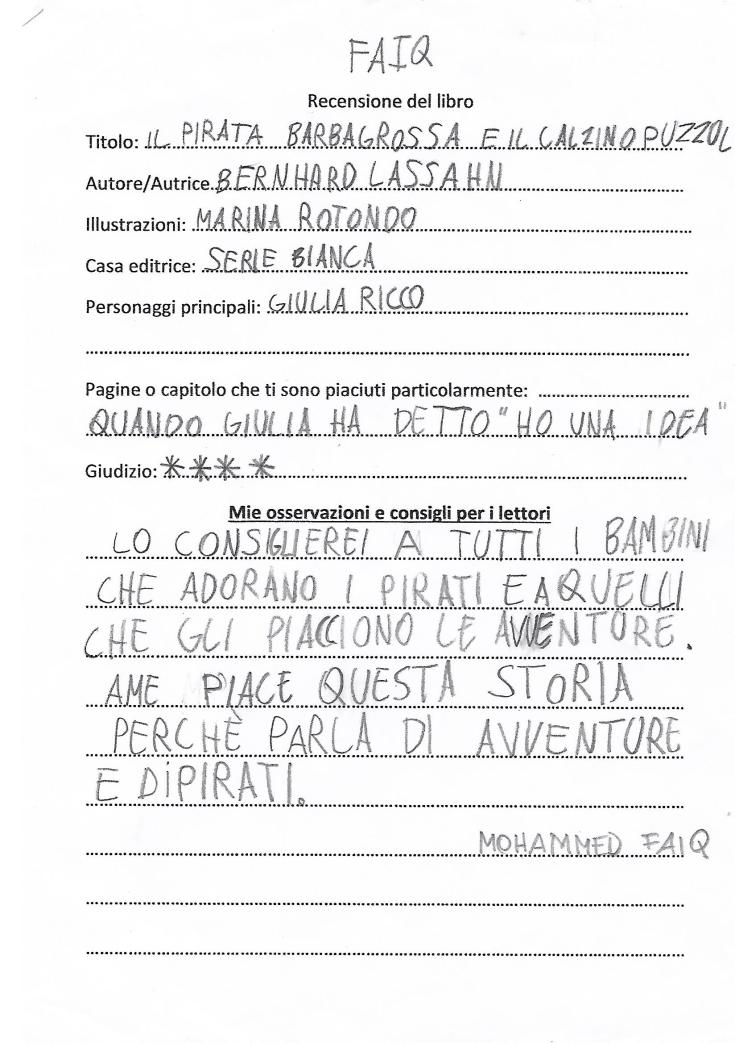 FAIQ
Recensione del libro
Titolo: IL PIRATA BARBAGROSSA E IL CALZINO PUZZOL
Autore/Autrice BERNHARD LASSAHN
Illustrazioni: MARINA ROTONDO
Casa editrice: SERIE BIANCA
Personaggi principali: GIULIA RICCO
Pagine o capitolo che ti sono piaciuti particolarmente:
QUANDO GIULIA HA DETTO "HO UNA IDEA"
Giudizio: ****
Mie osservazioni e consigli per i lettori
LO CONSIGLIEREI A TUTTI I BAMBINI
CHE ADORANO I PIRATI E A QUELLI
CHE GLI PIACCIONO LE AVVENTURE.
AME PIACE QUESTA STORIA
PERCHÈ PARLA DI AVVENTURE
E DiPIRATI.
MOHAMMED FAIQ